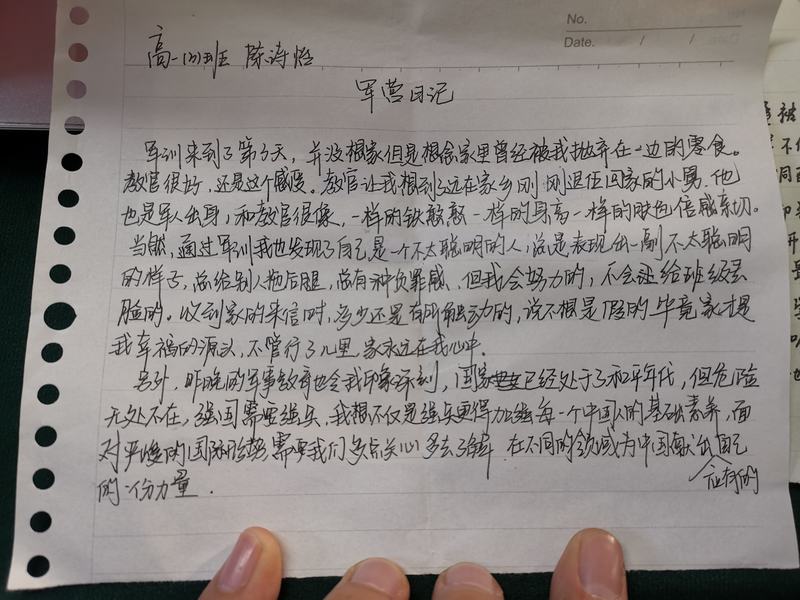 No.
Date. / /
高一(3)班 陈诗怡
军营日记
军训来到了第3天，并没想家但是想念家里曾经被我抛弃在一边的零食。
教官很好，还是这个感受。教官让我想到了远在家乡刚刚退伍回家的小舅，他
也是军人出身，和教官很像，一样的铁憨憨一样的身高一样的肤色倍感亲切。
当然，通过军训我也发现了自己是一个不太聪明的人，总是表现出一副不太聪明
的样子，总给别人拖后腿，总有种负罪感，但我会努力的，不会让给班级丢
脸的。收到家的来信时，多少还是有所触动的，说不想是假的，毕竟家才是
我幸福的源头，不管行了几里，家永远在我心中。
另外，昨晚的军事教育也令我印象深刻，国家已经处于了和平年代，但危险
无处不在，强国需要强兵，我想不仅是强兵更得加强每一个中国人的基础素养，面
对严峻的国际形势需要我们多点关心多去了解，在不同的领域为中国献出自己
应有的
的一份力量．
被
不
同